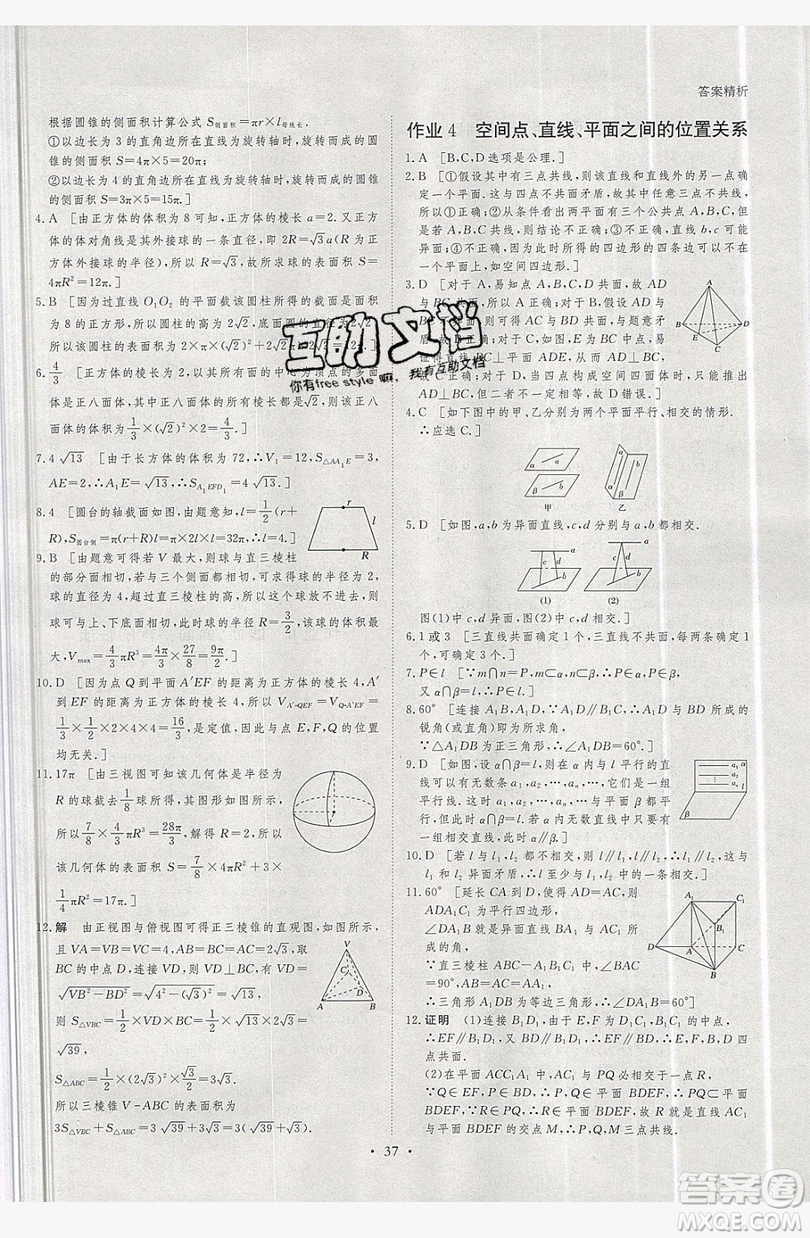 答案精析
根据圆锥的侧面积计算公式 S侧面积=πr×l母线长.
①以长度为 3 的直角边为旋转轴旋转时,形成的圆锥的侧面积 S=4π×5=20π.
②以长度为 4 的直角边为旋转轴旋转时,形成的圆锥的侧面积 S=3π×5=15π.]
4.A [由正方体的体积为 8 可知,正方体的棱长 a=2.又正方
体的体对角线是其外接球的一条直径,即 2R=√3a(R 为正
方体外接球的半径),所以 R=√3,故所求球的表面积 S=
4πR²=12π.]
5.B [因为过直线 O₁O₂ 的平面截该圆柱所得的截面是面积
为 8 的正方形,所以圆柱的高为 2√2,底面圆的直径为 2√2,
所以该圆柱的表面积为 2×π×(√2)²+2√2π×2√2=12π.]
6.4/3 [正方体的棱长为 2,以其所有面的中心为顶点的多面
体是正八面体,其中正八面体的所有棱长都是√2,则该正八
面体的体积为 1/3×(√2)²×2=4/3.]
7.4√13 [由于长方体的体积为 72,∴V₁=12,S△AA₁E=3,
AE=2,∴A₁E=√13,∴S▱A₁EFD₁=4√13.]
8.4 [圆台的轴截面如图,由题意知,l=1/2(r+
R),S圆台侧=π(r+R)l=π·2l·l=32π,∴l=4.]
9.B [由题意可得若 V 最大,则球与直三棱柱
的部分面相切,若与三个侧面都相切,可求得球的半径为 2,
球的直径为 4,超过直三棱柱的高,所以这个球放不进去,则
球可与上、下底面相切,此时球的半径 R=3/2,该球的体积最
大,Vmax=4/3πR³=4π/3×27/8=9π/2.]
10.D [因为点 Q 到平面 A′EF 的距离为正方体的棱长 4,A′
到 EF 的距离为正方体的棱长 4,所以 V_A′-QEF=V_Q-A′EF=
1/3×1/2×2×4×4=16/3,是定值,因此与点 E,F,Q 的位置
均无关.]
11.17π [由三视图可知该几何体是半径为
R 的球截去 1/8 球所得,其直观图如图所示,
所以 7/8×4/3πR³=28π/3,解得 R=2,所以
该几何体的表面积 S=7/8×4πR²+3×
1/4πR²=17π.]
12.解 由正视图与俯视图可得正三棱锥的直观图,如图所示,
且 VA=VB=VC=4,AB=BC=AC=2√3,取
BC 的中点 D,连接 VD,则 VD⊥BC,所以 VD=
√(VB²−BD²)=√(4²−(√3)²)=√13,
则 S△VBC=1/2×VD×BC=1/2×√13×2√3=
√39,
S△ABC=1/2×(2√3)²×√3/2=3√3,
所以三棱锥 V-ABC 的表面积为
3S△VBC+S△ABC=3√39+3√3=3(√39+√3).
作业 4 空间点、直线、平面之间的位置关系
1.A [B,C,D 选项是公理.]
2.B [①假设其中有三点共线,则该直线和直线外的另一点
确定一个平面.这与四点不共面矛盾,故其中任意三点不共
线,所以①正确;②从条件看出两平面有三个公共点 A,B,C,但
是若 A,B,C 共线,则结论不正确;③不正确;④不正确,因
为此时所得的四边形的四条边可以不在
一个平面上,如空间四边形.]
3.D [对于 A,易知点 A,B,C,D 共面,故
AD 与 BC 共面,所以 A 正确;对于 B,假
设 AC 与 BD 不是异面直线,则 AC 与 BD
共面,所以可得 AD 与 BC 共面,与题意矛盾,故 AC 与 BD
是异面直线,故 B 正确;对于 C,如图,E 为 BC 中点,易
证得直线 BC⊥平面 ADE,从而 AD⊥BC,
故 C 正确;对于 D,当四点构成空间四面体时,只能推出
AD⊥BC,但二者不一定相等,故 D 错误.]
4.C [如图中的甲、乙分别为两个平面平行、相交的情形.
∴应选 C.]
甲 乙
5.D [如图,a,b 为异面直线,c,d 分别与 a,b 都相交.
(1) (2)
图(1)中 c,d 异面,图(2)中 c,d 相交.]
6.1 或 3 [三直线共面确定 1 个,三直线不共面确定 3 个.]
7.P∈l [∵m∩n=P,∴P∈m,P∈n,又 m⊂α,n⊂β,
又 α∩β=l,∴P∈l.]
8.60° [连接 A₁B,A₁D,∵A₁B∥D₁C,∴A₁B 与 BD 所成的
锐角(或直角)即为所求角,
∵△A₁BD 为正三角形,∴∠A₁BD=60°.]
9.C [如图,设 α∩β=l,则在 α 内与 l 平行的直线
可以有无数条 a₁,a₂,⋯,aₙ,⋯,它们是一组平行
线.这时 a₁,a₂,⋯,aₙ,⋯与平面 β 都平行,但
此时 α∩β=l.而 α 内有无数条直线中只要有
一组相交直线,则 α∥β.]
10.D [若 l 与 l₁,l₂ 都不相交则 l∥l₁,l∥l₂,∴l₁∥l₂,与 l₁ 和
l₂ 异面矛盾,∴l 至少与 l₁,l₂ 中的一条相交.]
11.60° [延长 CA 到 D,使得 AD=AC,则
ADA₁C₁ 为平行四边形,∠DA₁B 就是异
面直线 BA₁ 与 AC₁ 所成的角.
∵直三棱柱 ABC-A₁B₁C₁ 中,
∠BAC=90°,AB=AC=AA₁,
∴三角形 A₁DB 为等边三角形,
∴∠DA₁B=60°.]
12.证明 (1)连接 B₁D₁,由于 E,F 是中点,
∴EF∥B₁D₁,又 B₁D₁∥BD,∴EF∥BD,
∴D,B,F,E 四点共面.
(2)在平面 ACC₁A₁ 中,A₁C 与 PQ 必相交于一点 R,
∵Q∈EF,P∈BD,∴PQ⊂平面 BDEF,又 A₁C 交平面
BDEF 于 M,∵R∈PQ,∴R∈平面 BDEF,∴R 是 A₁C 与
平面 BDEF 的交点 M,∴P,Q,M 三点共线.
• 37 •
互助文档
你有free style 嘛,我有互助文档
答案圈
MXQE.COM